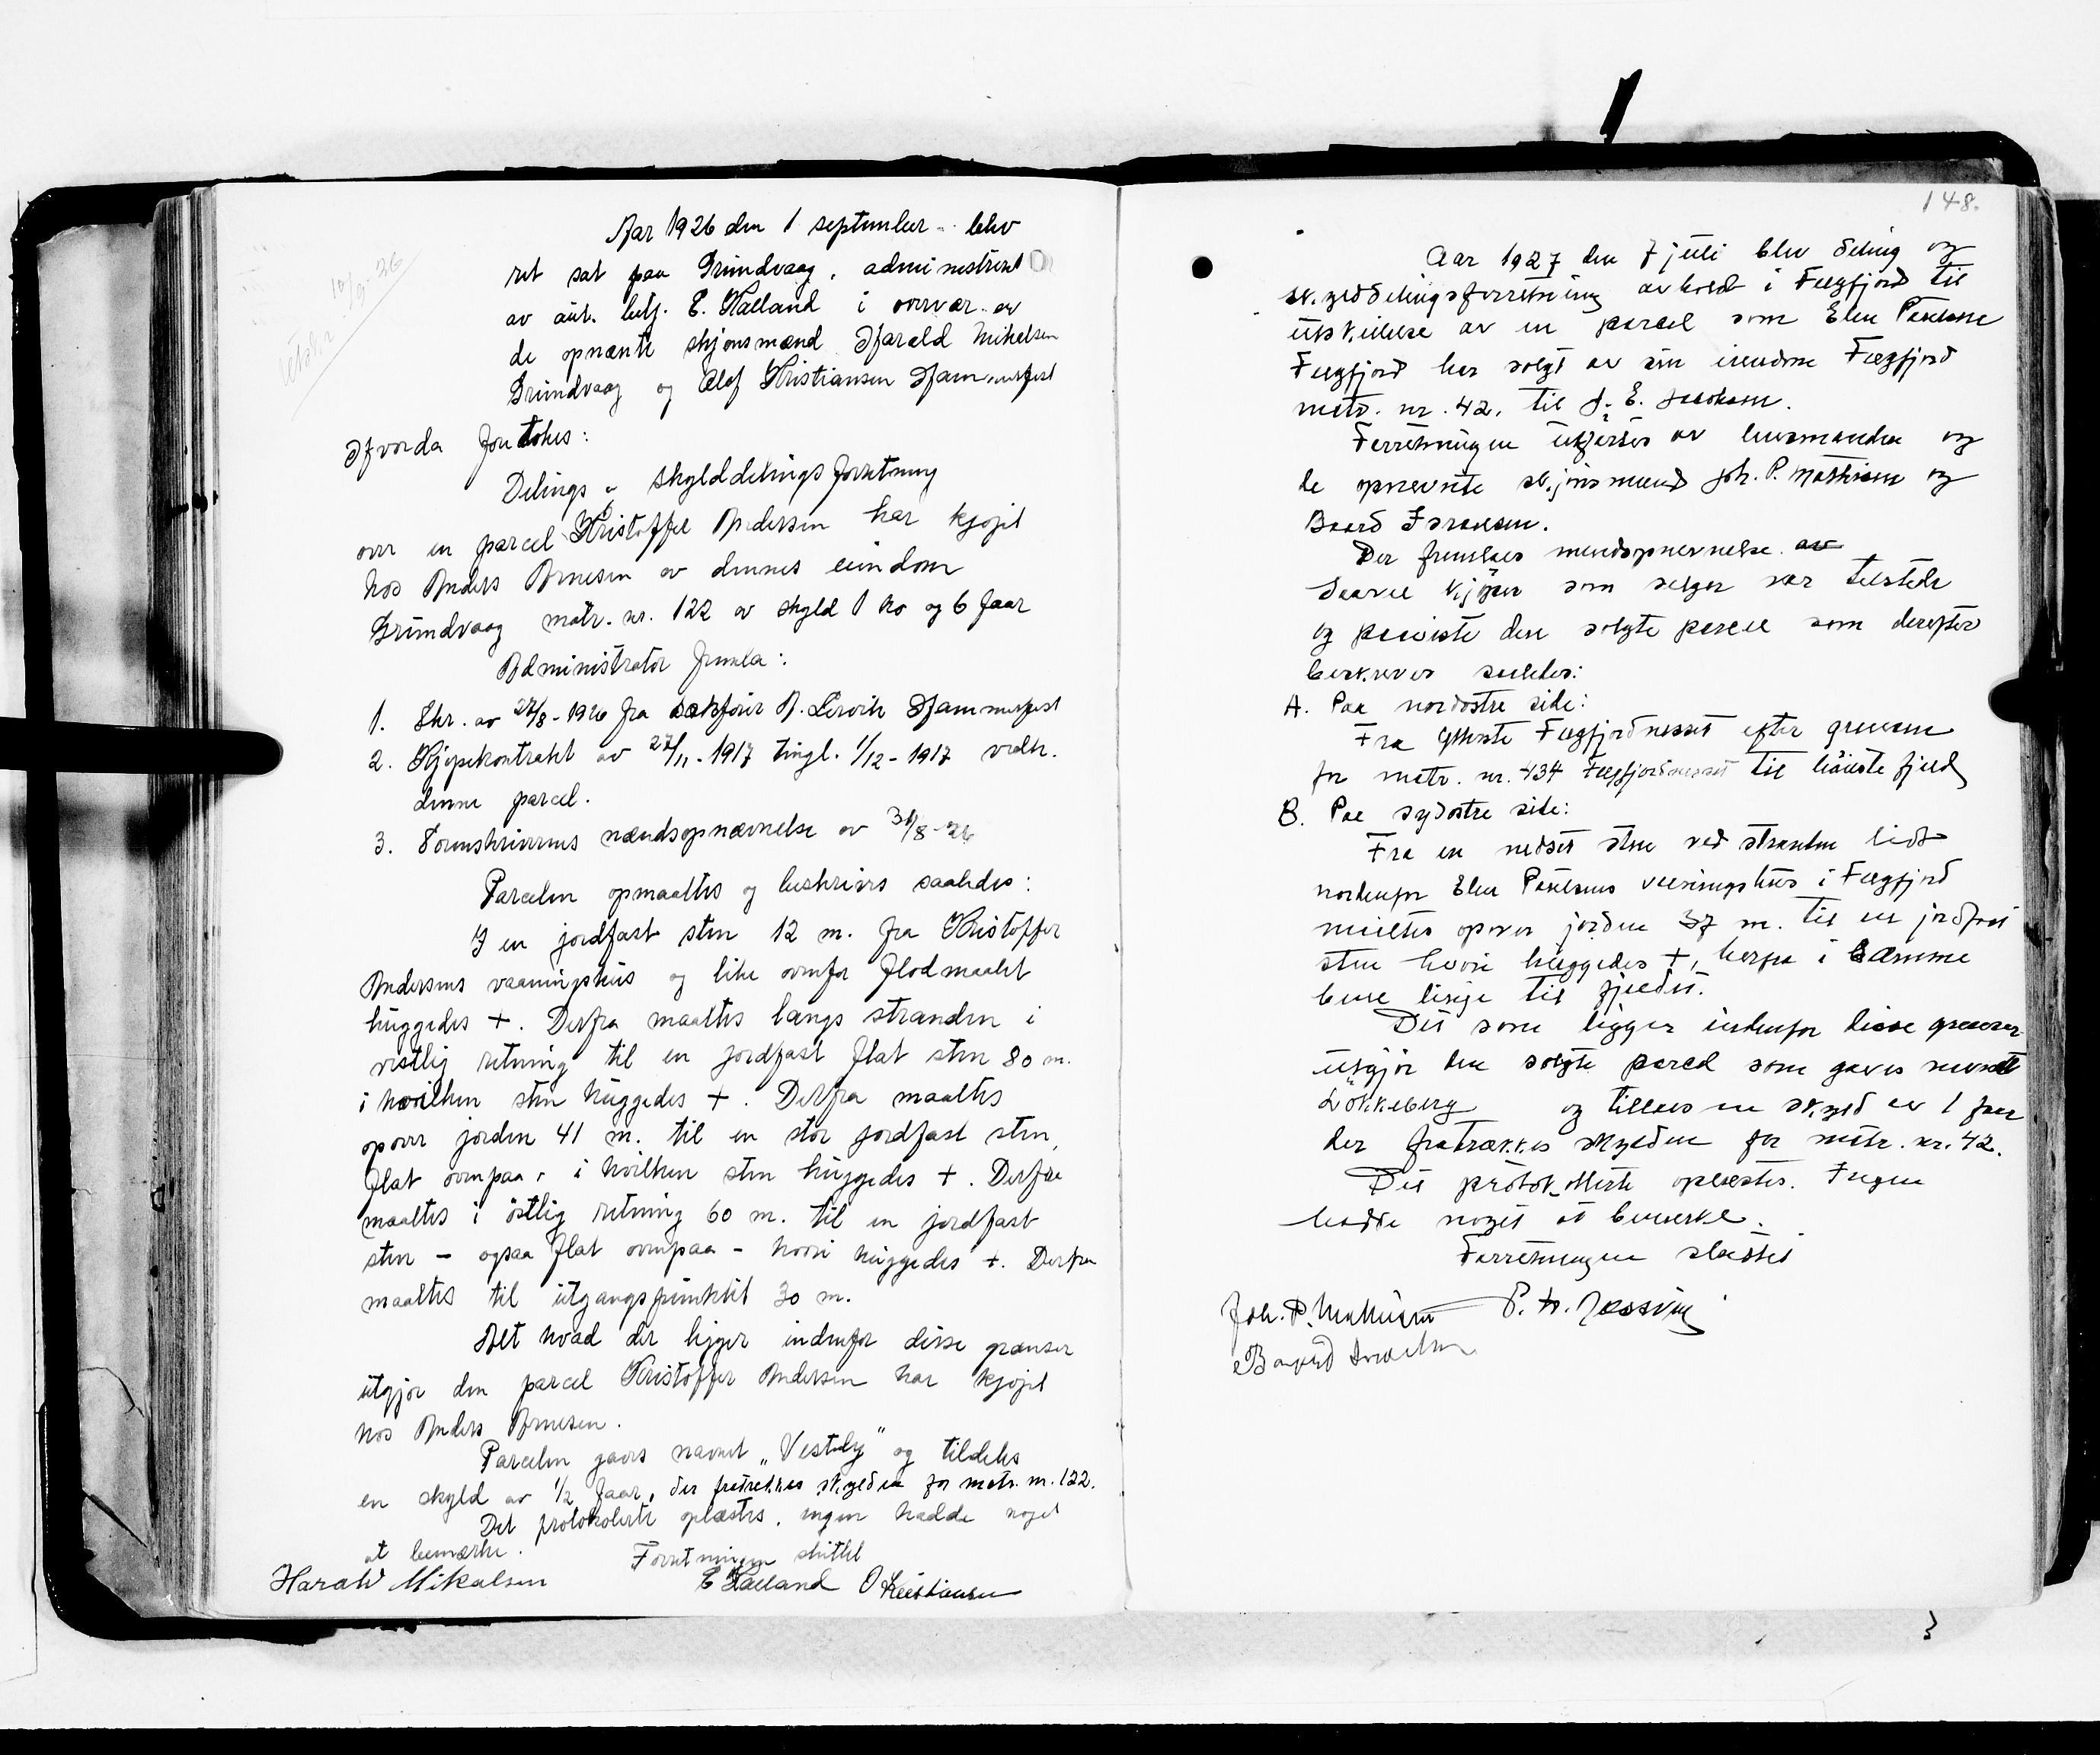 10/9-26
Aar 1926 den 1 september blev
ret sat paa Grundvaag, administrert
av aut. betj. E. Kalland i overvær av
de opnævnte skjønsmænd Harald Mikalsen
Grundvaag og Olaf Kristiansen Hammerfest
Hvorda foretokes:
Delings & skylddelingsforretning
over en parcel Kristoffer Andersen har kjøpt
hos Anders Arnesen av dennes eiendom
Grundvaag matr. nr. 122 av skyld 1 ko og 6 faar
Administrator fremla:
1. Skr. av 27/8-1926 fra sakfører A. Lervik Hammerfest
2. Kjøpekontrakt av 27/11-1917 tingl. 1/12-1917 vedk.
denne parcel.
3. Sorenskriverens mændsopnævnelse av 31/8-26
Parcelen opmaaltes og beskrives saaledes:
I en jordfast sten 12 m. fra Kristoffer
Andersens vaaningshus og like ovenfor flodmaalet
huggedes +. Derfra maaltes langs stranden i
vestlig retning til en jordfast flat sten 80 m.
i hvilken sten huggedes +. Derfra maaltes
opover jorden 41 m. til en stor jordfast sten,
flat ovenpaa, i hvilken sten huggedes +. Derfra
maaltes i östlig retning 60 m. til en jordfast
sten - ogsaa flat ovenpaa - hvori huggedes +. Derfra
maaltes til utgangspunktet 30 m.
Alt hvad der ligger indenfor disse grænser
utgjør den parcel Kristoffer Andersen har kjøpt
hos Anders Arnesen.
Parcelen gaves navnet „Vestly" og tildeles
en skyld av 1/2 faar, der fratrekkes skylden for matr. nr. 122.
Det protokolerte oplæstes, ingen hadde noget
at bemærke.
Forretningen sluttet
Harald Mikalsen E Kalland O Kristiansen
148.
Aar 1927 den 7 juli blev deling og
skylddelingsforretning avholdt i Fægfjord til
utskillelse av en parcel som Elen Paulsen
Fægfjord har solgt av sin eiendom Fægfjord
matr. nr. 42, til J. E. Jacobsen.
Forretningen utførtes av lensmanden og
de opnævnte skjønsmænd Joh. P. Mathisen og
Baard Israelsen.
Der fremlaes mændsopnevnelse. av
Saavel kjøper som selger var tilstede
og paaviste den solgte parcel som derefter
beskreves saaledes:
A. Paa nordostre side:
Fra ytterste Fægfjordnesset efter grensen
for matr. nr. 434 Fægfjordnesset til höieste fjeld
B. Paa sydostre side:
Fra en nedsat sten ved stranden lidt
nordenfor Elen Paulsens vaaningshus i Fægfjord
maaltes opover jorden 37 m. til en jordfast
sten hvori huggedes +, herfra i samme
bene linje til fjeldet.
Det som ligger indenfor disse grænser
utgjør den solgte parcel som gaves navnet
Lökkeberg og tillaes en skyld av 1 faar
der fratrækkes skylden for matr. nr. 42.
Det protokollerte oplæstes. Ingen
hadde noget at bemerke.
Forretningen sluttet
Joh. P. Mathisen P. A.
Baard Israelsen